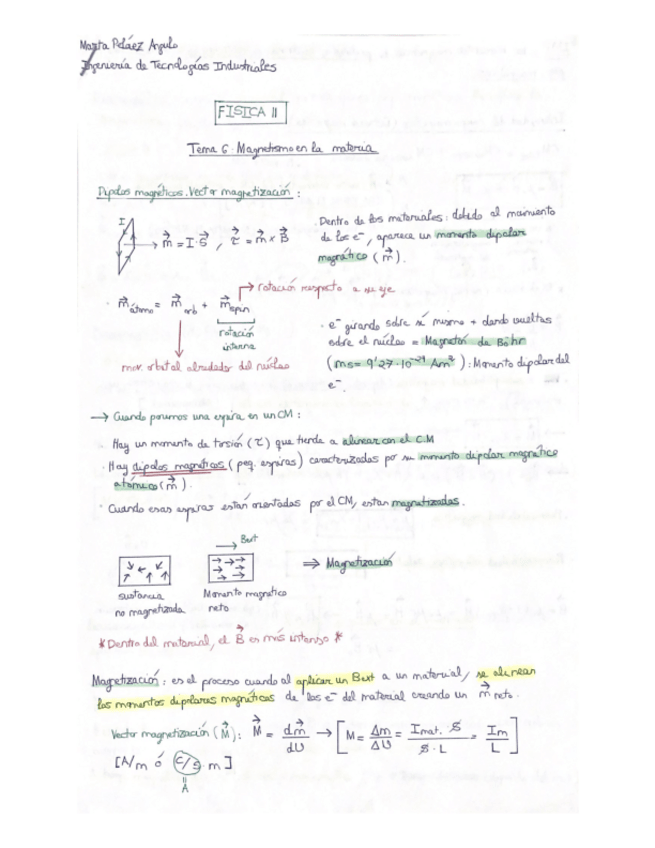 Marta Peláez Angulo
Ingeniería de Tecnologías Industriales
FISICA II
Tema 6: Magnetismo en la materia
Dipolos magnéticos. Vector magnetización:
I
→ m⃗ = I·S⃗ , τ⃗ = m⃗ × B⃗
· Dentro de los materiales: debido al movimiento
de los e⁻, aparece un momento dipolar
magnético (m⃗).
→ rotación respecto a su eje
· m⃗átomo = m⃗orb + m⃗spin
rotación
interna
mov. orbital alrededor del núcleo
· e⁻ girando sobre sí mismo + dando vueltas
sobre el núcleo = Magnetón de Böhr
(ms = 9'27·10⁻²⁴ Am²): Momento dipolar del
e⁻.
→ Cuando ponemos una espira en un CM:
Hay un momento de torsión (τ) que tiende a alinear con el C.M
· Hay dipolos magnéticos (peq. espiras) caracterizados por su momento dipolar magnético
atómico (m⃗).
· Cuando esas espiras están orientadas por el CM, estan magnetizadas.
→ Bext
⇒ Magnetización
sustancia
no magnetizada
Momento magnético
neto
* Dentro del material, el B⃗ es más intenso *
Magnetización: es el proceso cuando al aplicar un Bext a un material, se alinean
los momentos dipolares magnéticos de los e⁻ del material creando un m⃗ neto.
Vector magnetización (M⃗): M⃗ = dm⃗/dU → [M = Δm/ΔU = Imat. · S/S · L = Im/L]
[A/m ó C/s · m]
=
A